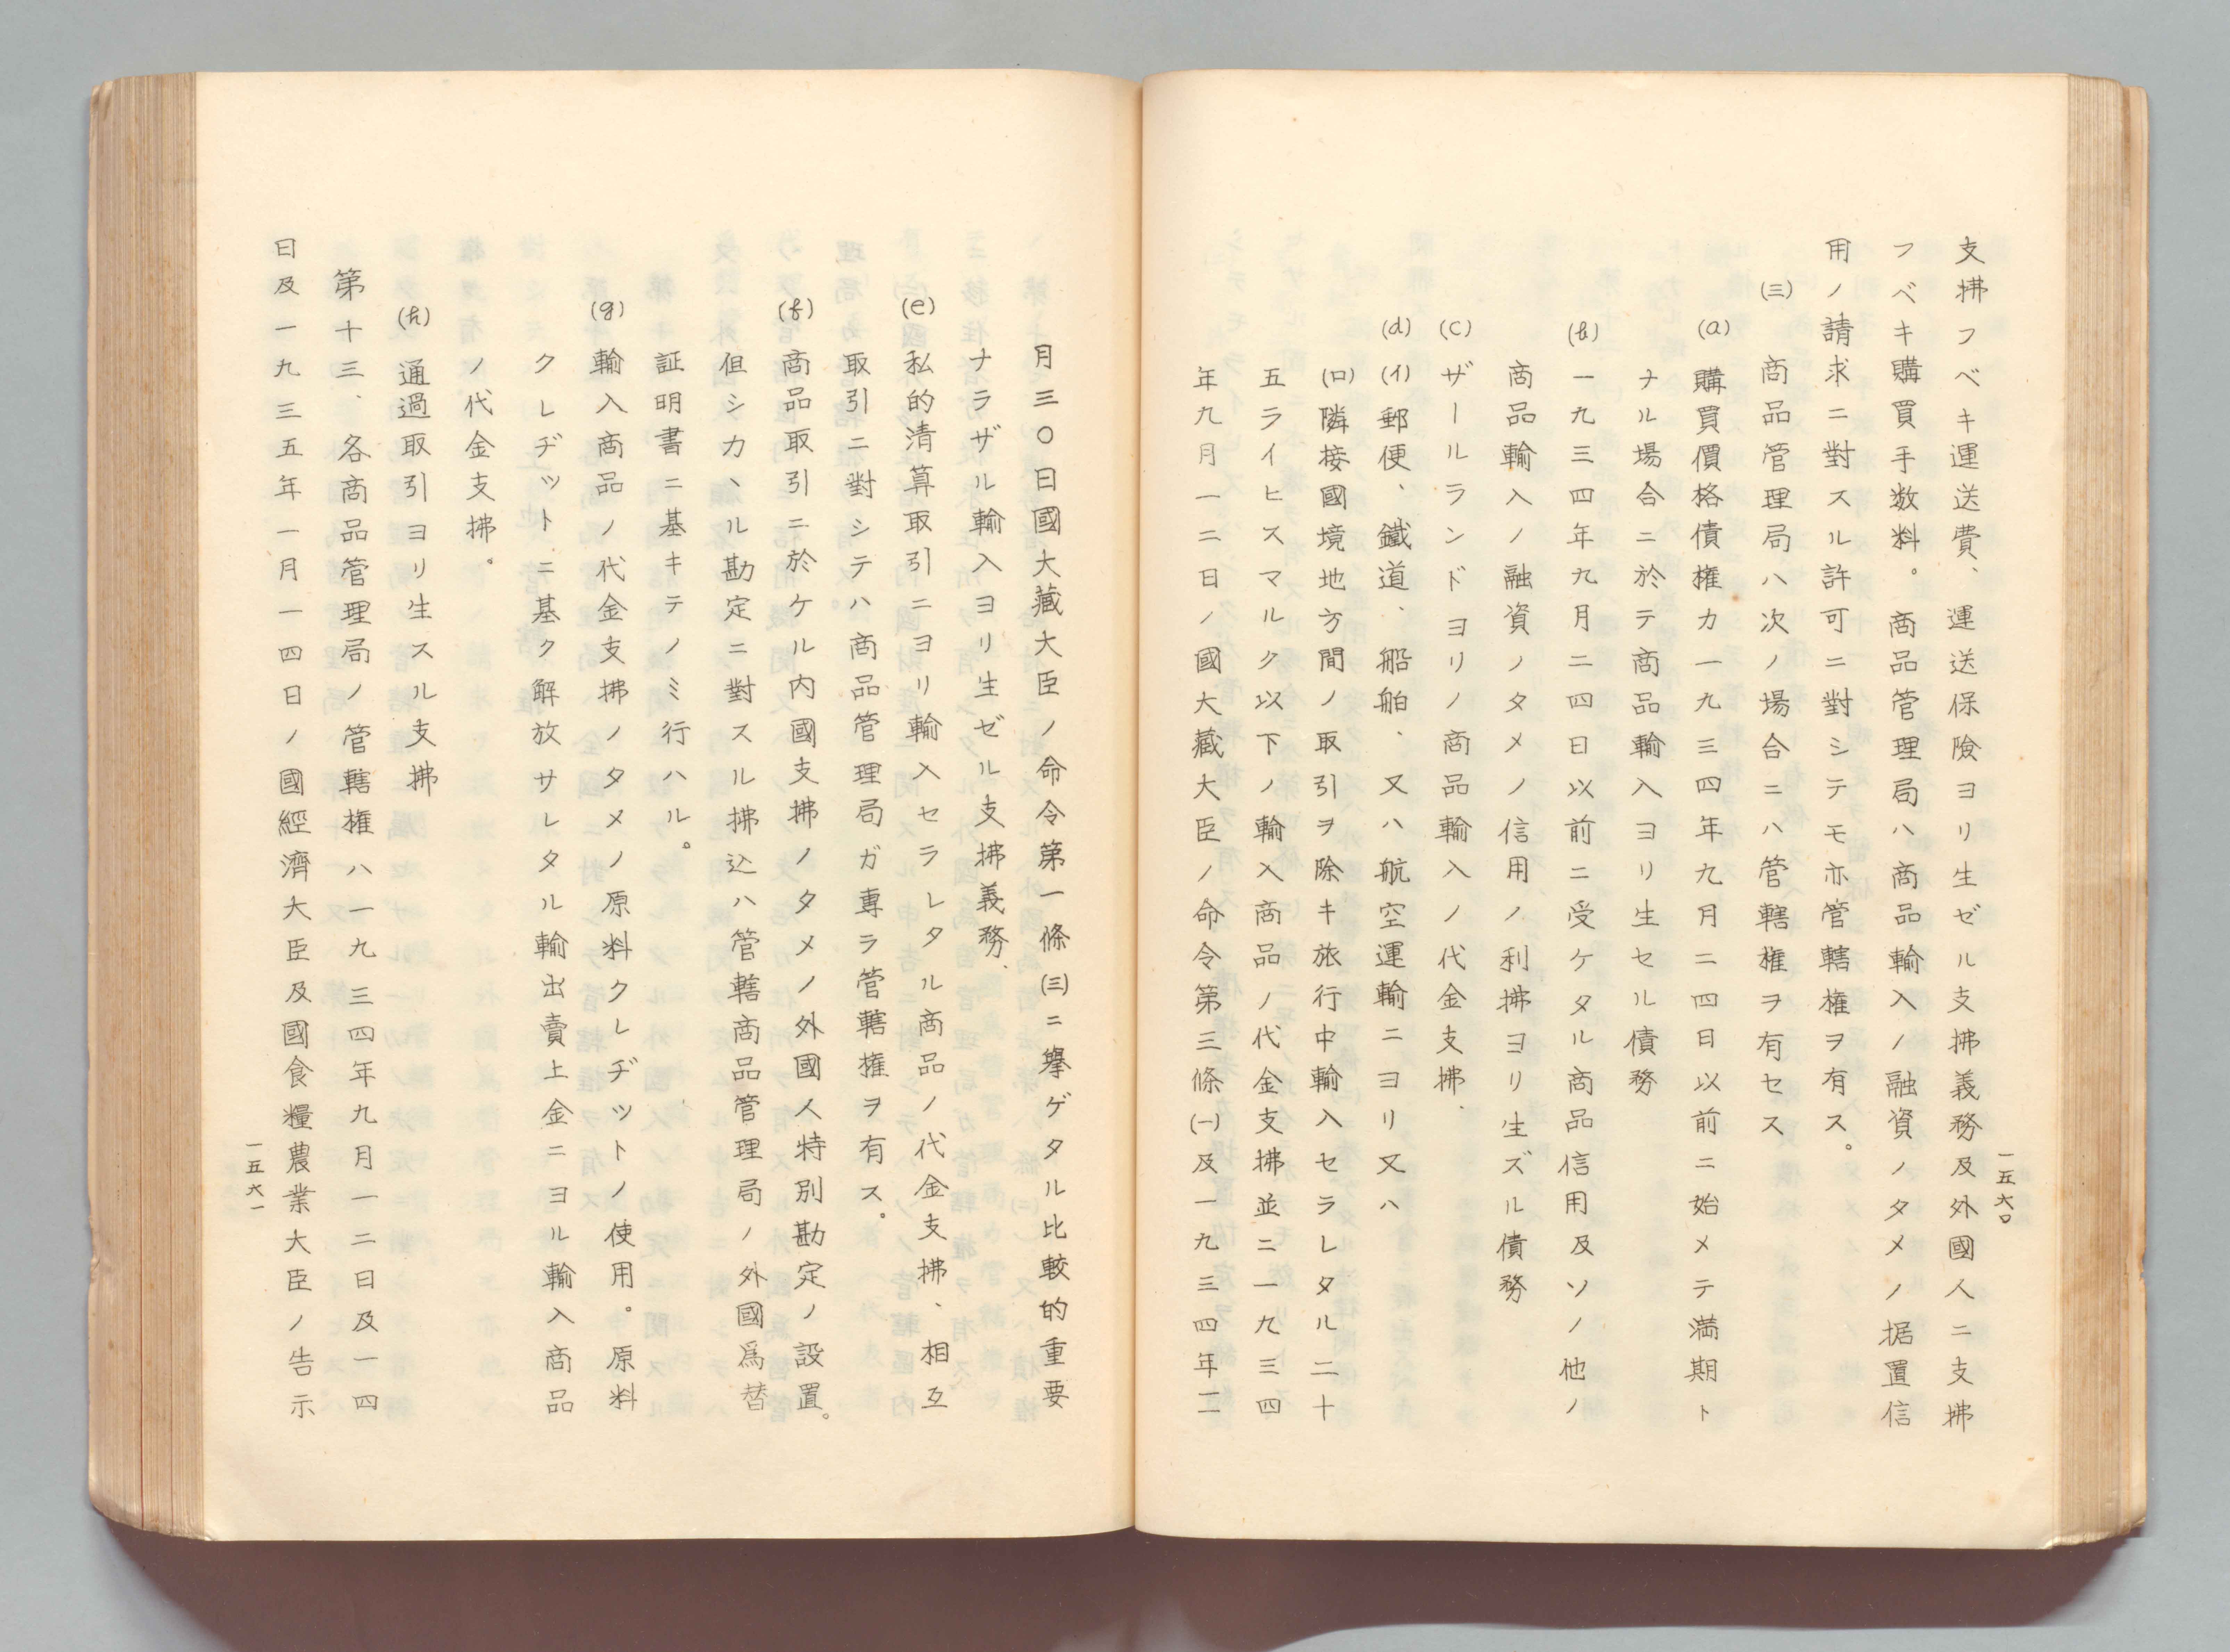 一五六〇
支拂フベキ運送費、運送保險ヨリ生ゼル支拂義務及外國人ニ支拂
フベキ購買手数料。商品管理局ハ商品輸入ノ融資ノタメノ据置信
用ノ請求ニ對スル許可ニ對シテモ亦管轄権ヲ有ス。
(三)商品管理局ハ次ノ場合ニハ管轄権ヲ有セス
(a)購買價格債権カ一九三四年九月二四日以前ニ始メテ満期ト
ナル場合ニ於テ商品輸入ヨリ生セル債務
(b)一九三四年九月二四日以前ニ受ケタル商品信用及ソノ他ノ
商品輸入ノ融資ノタメノ信用ノ利拂ヨリ生ズル債務
(c)ザールランドヨリノ商品輸入ノ代金支拂、
(d)(イ)郵便、鐵道、船舶、又ハ航空運輸ニヨリ又ハ
(ロ)隣接國境地方間ノ取引ヲ除キ旅行中輸入セラレタル二十
五ライヒスマルク以下ノ輸入商品ノ代金支拂並ニ一九三四
年九月一二日ノ國大藏大臣ノ命令第三條(一)及一九三四年一二
月三〇日國大藏大臣ノ命令第一條(三)ニ擧ゲタル比較的重要
ナラザル輸入ヨリ生ゼル支拂義務、
(e)私的清算取引ニヨリ輸入セラレタル商品ノ代金支拂、相互
取引ニ對シテハ商品管理局ガ専ラ管轄権ヲ有ス。
(f)商品取引ニ於ケル内國支拂ノタメノ外國人特別勘定ノ設置。
但シカヽル勘定ニ對スル拂込ハ管轄商品管理局ノ外國爲替
証明書ニ基キテノミ行ハル。
(g)輸入商品ノ代金支拂ノタメノ原料クレヂットノ使用。原料
クレヂットニ基ク解放サレタル輸出賣上金ニヨル輸入商品
ノ代金支拂。
(h)通過取引ヨリ生スル支拂
第十三、各商品管理局ノ管轄権ハ一九三四年九月一二日及一四
日及一九三五年一月一四日ノ國經濟大臣及國食糧農業大臣ノ告示
一五六一